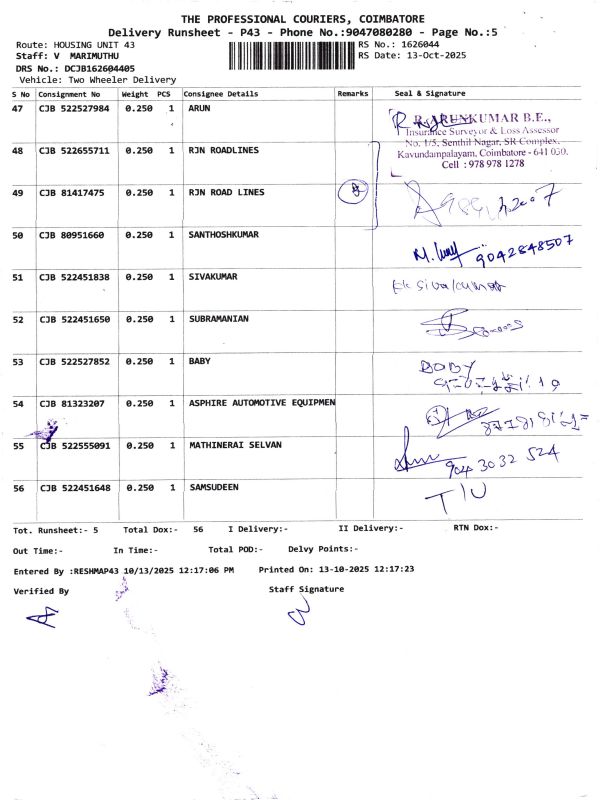 THE PROFESSIONAL COURIERS, COIMBATORE
Delivery Runsheet - P43 - Phone No.:9047080280 - Page No.:5
Route: HOUSING UNIT 43
RS No.: 1626044
Staff: V MARIMUTHU
RS Date: 13-Oct-2025
DRS No.: DCJB162604405
Vehicle: Two Wheeler Delivery
S No Consignment No Weight PCS Consignee Details Remarks Seal & Signature
47 CJB 522527984 0.250 1 ARUN
R. ARUNKUMAR B.E.,
Insurance Surveyor & Loss Assessor
No. 1/5, Senthil Nagar, SR Complex,
Kavundampalayam, Coimbatore - 641 030.
Cell : 978 978 1278
48 CJB 522655711 0.250 1 RJN ROADLINES
49 CJB 81417475 0.250 1 RJN ROAD LINES
50 CJB 80951660 0.250 1 SANTHOSHKUMAR
9042848507
51 CJB 522451838 0.250 1 SIVAKUMAR
sivalkumar
52 CJB 522451650 0.250 1 SUBRAMANIAN
53 CJB 522527852 0.250 1 BABY
54 CJB 81323207 0.250 1 ASPHIRE AUTOMOTIVE EQUIPMEN
55 CJB 522555091 0.250 1 MATHINERAI SELVAN
904 3032 524
56 CJB 522451648 0.250 1 SAMSUDEEN
T/U
Tot. Runsheet:- 5 Total Dox:- 56 I Delivery:- II Delivery:- RTN Dox:-
Out Time:- In Time:- Total POD:- Delvy Points:-
Entered By :RESHMAP43 10/13/2025 12:17:06 PM Printed On: 13-10-2025 12:17:23
Verified By Staff Signature